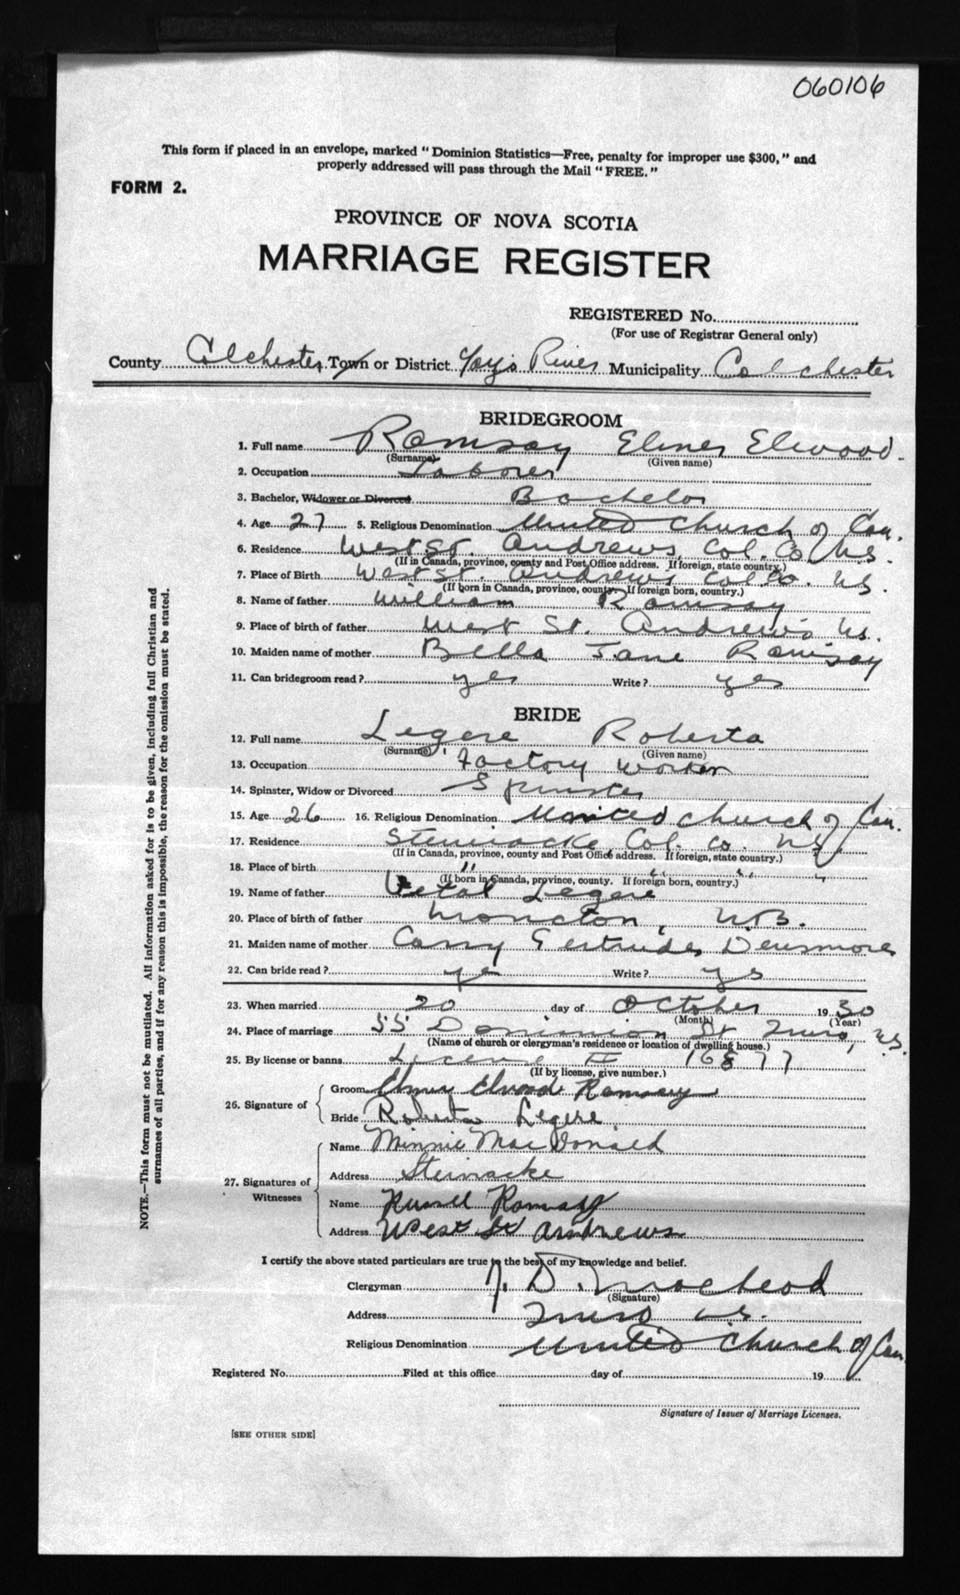 060106
This form if placed in an envelope, marked "Dominion Statistics—Free, penalty for improper use $300," and
properly addressed will pass through the Mail "FREE."
FORM 2.
PROVINCE OF NOVA SCOTIA
MARRIAGE REGISTER
REGISTERED No.
(For use of Registrar General only)
County Colchester Town or District River Municipality Colchester
BRIDEGROOM
1. Full name Ramsay Elmer Elwood
(Surname) (Given name)
2. Occupation Laborer
3. Bachelor, Widower or Divorced Bachelor
4. Age 27 5. Religious Denomination United Church of Can.
6. Residence West St. Andrews Col. Co N.S.
(If in Canada, province, county and Post Office address. If foreign, state country.)
7. Place of Birth West St. Andrews Col Co. N.S.
(If born in Canada, province, county. If foreign born, country.)
8. Name of father William Ramsay
9. Place of birth of father West St. Andrews N.S.
10. Maiden name of mother Bella Jane Ramsay
11. Can bridegroom read? yes Write? yes
BRIDE
12. Full name Legere Roberta
(Surname) (Given name)
13. Occupation Factory worker
14. Spinster, Widow or Divorced Spinster
15. Age 26 16. Religious Denomination United Church of Can.
17. Residence Stewiacke Col. Co. N.S.
(If in Canada, province, county and Post Office address. If foreign, state country.)
18. Place of birth " " " "
(If born in Canada, province, county. If foreign born, country.)
19. Name of father Vetal Legere
20. Place of birth of father Moncton, N.B.
21. Maiden name of mother Carry Gertrude Densmore
22. Can bride read? ye Write? ys
23. When married 20 day of October 1930
(Month) (Year)
24. Place of marriage 55 Dominion St Truro, N.S.
(Name of church or clergyman's residence or location of dwelling house.)
25. By license or banns License # 16877
(If by license, give number.)
26. Signature of
Groom Elmer Elwood Ramsay
Bride Roberta Legere
27. Signatures of Witnesses
Name Minnie MacDonald
Address Stewiacke
Name Russell Ramsay
Address West St Andrews
I certify the above stated particulars are true to the best of my knowledge and belief.
Clergyman J. D. MacLeod
(Signature)
Address Truro N.S.
Religious Denomination United Church of Can
Registered No. Filed at this office day of 19
Signature of Issuer of Marriage Licenses.
[SEE OTHER SIDE]
NOTE.—This form must not be mutilated. All information asked for is to be given, including full Christian and
surnames of all parties, and if for any reason this is impossible, the reason for the omission must be stated.